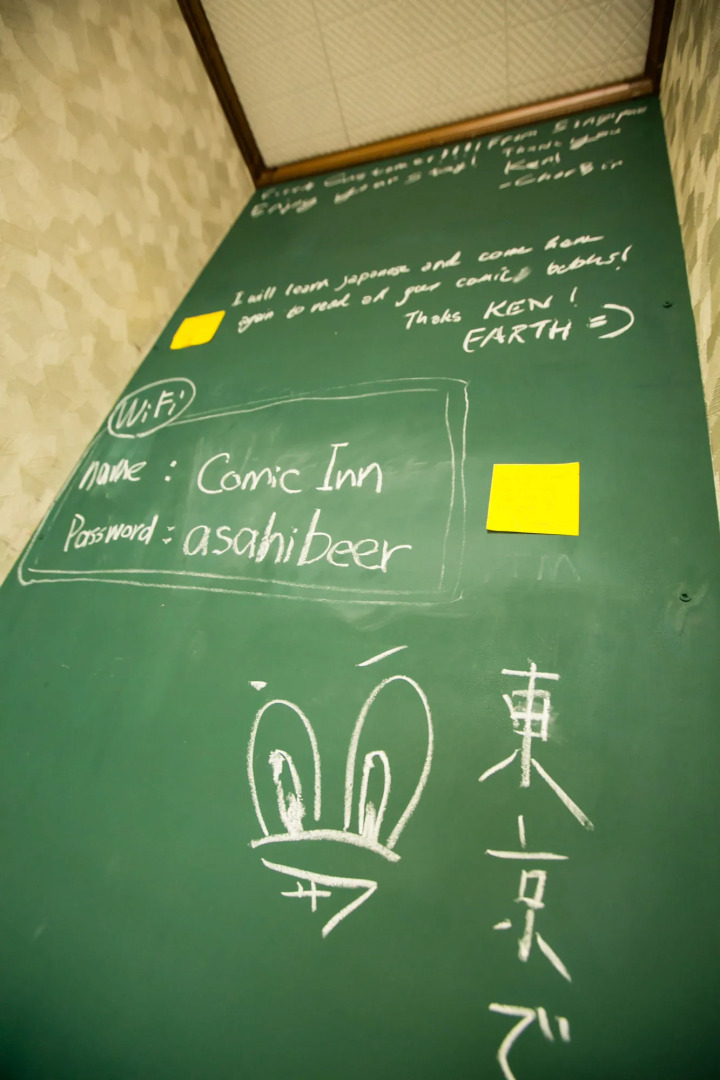 First Customer!!!! From Singapore
Enjoy your stay! Thank you
Ken!
I will learn japanese and come here
again to read all your comic bobbles!
Thaks KEN!
EARTH =)
WiFi
name : Comic Inn
Password : asahibeer
東京で